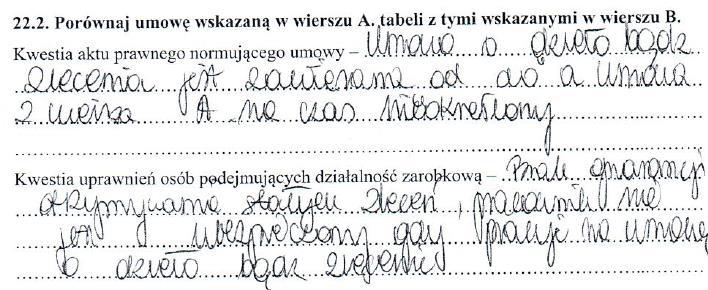 22.2. Porównaj umowę wskazaną w wierszu A. tabeli z tymi wskazanymi w wierszu B.
Kwestia aktu prawnego normującego umowy – Umowa o dzieło bądz
zlecenia jest zawierana od do a umowa
z wiersza A na czas nieokreślony
Kwestia uprawnień osób podejmujących działalność zarobkową – Brak gwarancji
otrzymywania stałych zleceń, pracownik nie
jest ubezpieczony gdy pracuje na umowę
o dzieło bądz zlecenie